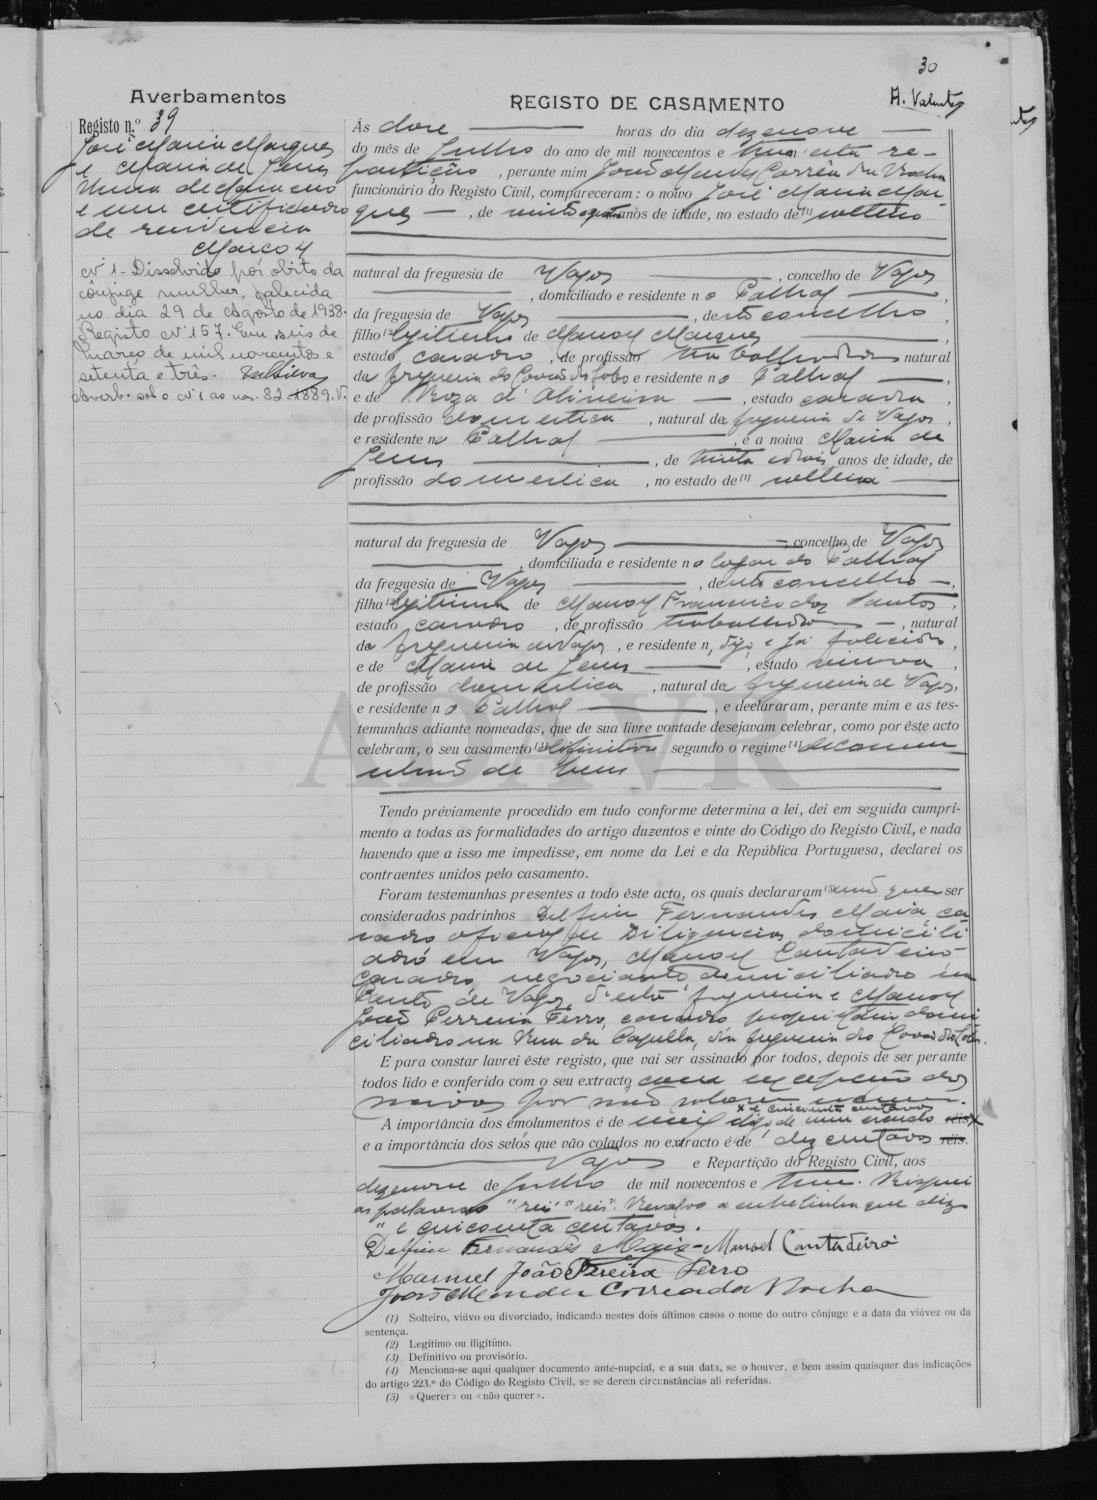 30
A. Valente
Averbamentos
Registo n.º 39
José Maria Marques
e Maria de Jesus
Uma declaração
e um certificado
de residencia
Nº 1 - Dissolvido por óbito da
cônjuge mulher, falecida
no dia 29 de Agosto de 1938.
Registo nº 157. Em seis de
Março de mil novecentos e
setenta e três.
Averb. sob o nº 1 ao nº 82-1889. V.
REGISTO DE CASAMENTO
Ás doze horas do dia dezenove
do mês de Julho do ano de mil novecentos e trinta, nesta re-
partição, perante mim João Mendes Corrêa da Rocha
funcionário do Registo Civil, compareceram: o noivo José Maria Mar-
ques, de vinte e quatro anos de idade, no estado de (1) solteiro
natural da freguesia de Vagos, concelho de Vagos
, domiciliado e residente no Palhal,
da freguesia de Vagos, deste concelho,
filho (2) legitimo de Manoel Marques,
estado casado, de profissão trabalhador natural
da freguesia do Covão do Lobo e residente no Palhal,
e de Roza d'Oliveira, estado casada,
de profissão domestica, natural da freguesia de Vagos,
e residente no Palhal, e a noiva Maria de
Jesus, de trinta e dois anos de idade, de
profissão domestica, no estado de (1) solteira
natural da freguesia de Vagos, concelho de Vagos
, domiciliada e residente no lugar do Palhal
da freguesia de Vagos, deste concelho,
filha (2) legitima de Manoel Francisco dos Santos,
estado casado, de profissão trabalhador, natural
da freguesia de Vagos, e residente n, digo, e já falecido,
e de Maria de Jesus, estado viuva,
de profissão domestica, natural da freguesia de Vagos,
e residente no Palhal, e declararam, perante mim e as tes-
temunhas adiante nomeadas, que de sua livre vontade desejavam celebrar, como por êste acto
celebram, o seu casamento (3) definitivo segundo o regime (4) de comu-
nhão de bens
ADAVR
Tendo préviamente procedido em tudo conforme determina a lei, dei em seguida cumpri-
mento a todas as formalidades do artigo duzentos e vinte do Código do Registo Civil, e nada
havendo que a isso me impedisse, em nome da Lei e da República Portuguesa, declarei os
contraentes unidos pelo casamento.
Foram testemunhas presentes a todo êste acto, os quais declararam (5) não querer ser
considerados padrinhos Delfim Fernandes Maia, ca-
sado oficial de Diligencias domicili-
ado em Vagos, Manoel Cantadeiro
casado, negociante domiciliado em
de Vagos, d'esta freguesia e Manoel
João Perreira Ferro, casado proprietario domi-
ciliado na Rua da Capella, da freguesia do Covão do Lobo.
E para constar lavrei êste registo, que vai ser assinado por todos, depois de ser perante
todos lido e conferido com o seu extracto com excepção dos
noivos por não saberem
x e cincoenta centavos
A importância dos emolumentos é de mil digo de um escudo réis x
e a importância dos selos que vão colados no extracto é de dez centavos réis.
Vagos e Repartição do Registo Civil, aos
dezenove de Julho de mil novecentos e trinta. Risquei
as palavras "reis" "reis". Resalvo a entrelinha que diz
"e cincoenta centavos.
Delfim Fernandes Maia - Manoel Cantadeiro
Manuel João Pereira Ferro
João Mendes Correa da Rocha
(1) Solteiro, viúvo ou divorciado, indicando nestes dois últimos casos o nome do outro cônjuge e a data da viúvez ou da
sentença.
(2) Legítimo ou iligítimo.
(3) Definitivo ou provisório.
(4) Menciona-se aqui qualquer documento ante-nupcial, e a sua data, se o houver, e bem assim quaisquer das indicações
do artigo 223.º do Código do Registo Civil, se se derem circunstâncias ali referidas.
(5) «Querer» ou «não querer».